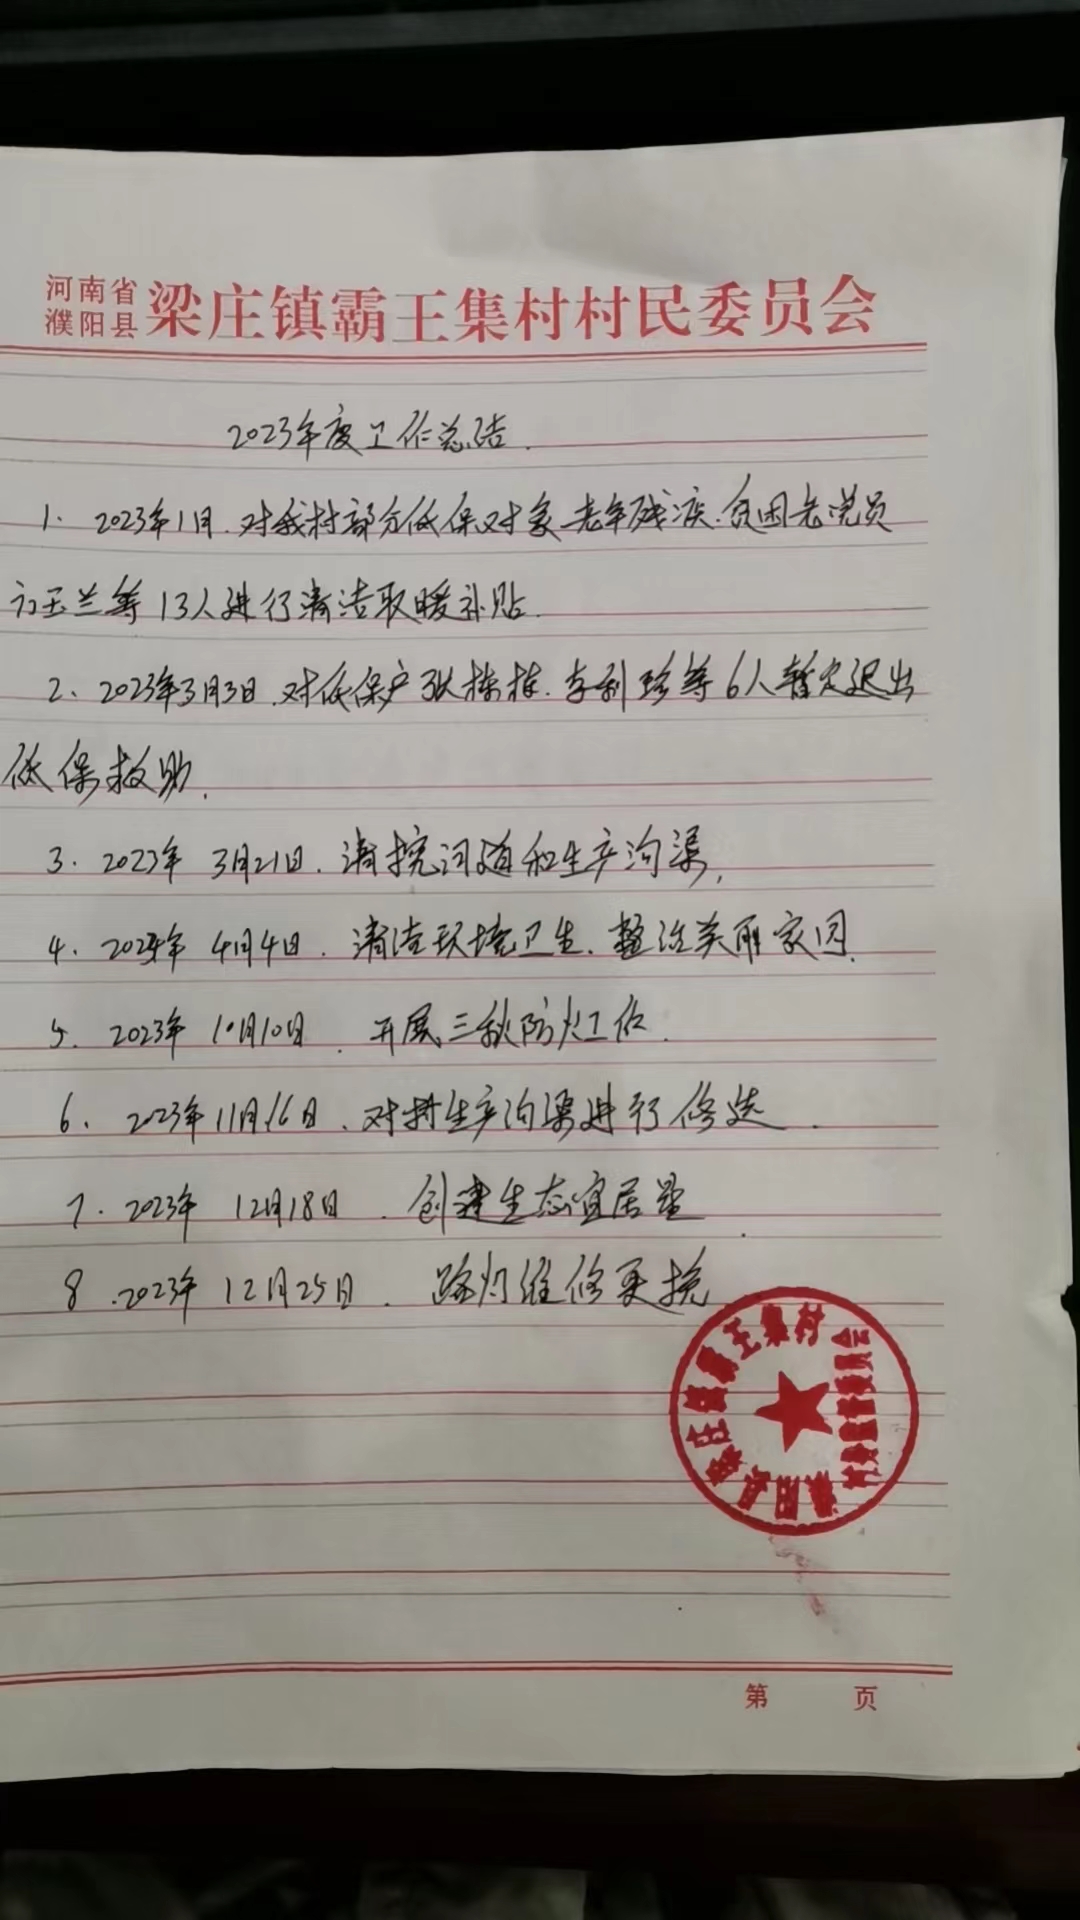 河南省
濮阳县
梁庄镇霸王集村村民委员会
2023年度工作总结.
1. 2023年1月.对我村部分低保对象 老年残疾.贫困老党员
玉兰等13人进行清洁取暖补贴.
2. 2023年3月3日.对低保户张 李利珍等6人暂定退出
低保救助.
3. 2023年 3月21日.清挖河道和生产沟渠,
4. 2023年 4月4日.清洁环境卫生.整治美丽家园.
5. 2023年 10月10日.开展三秋防火工作.
6. 2023年11月16日.对村生产沟渠进行修 .
7. 2023年 12月18日.创建生态宜居星.
8. 2023年 12月25日.路灯维修更换
濮阳县梁庄镇霸王集村
村务监督委员会
第 页